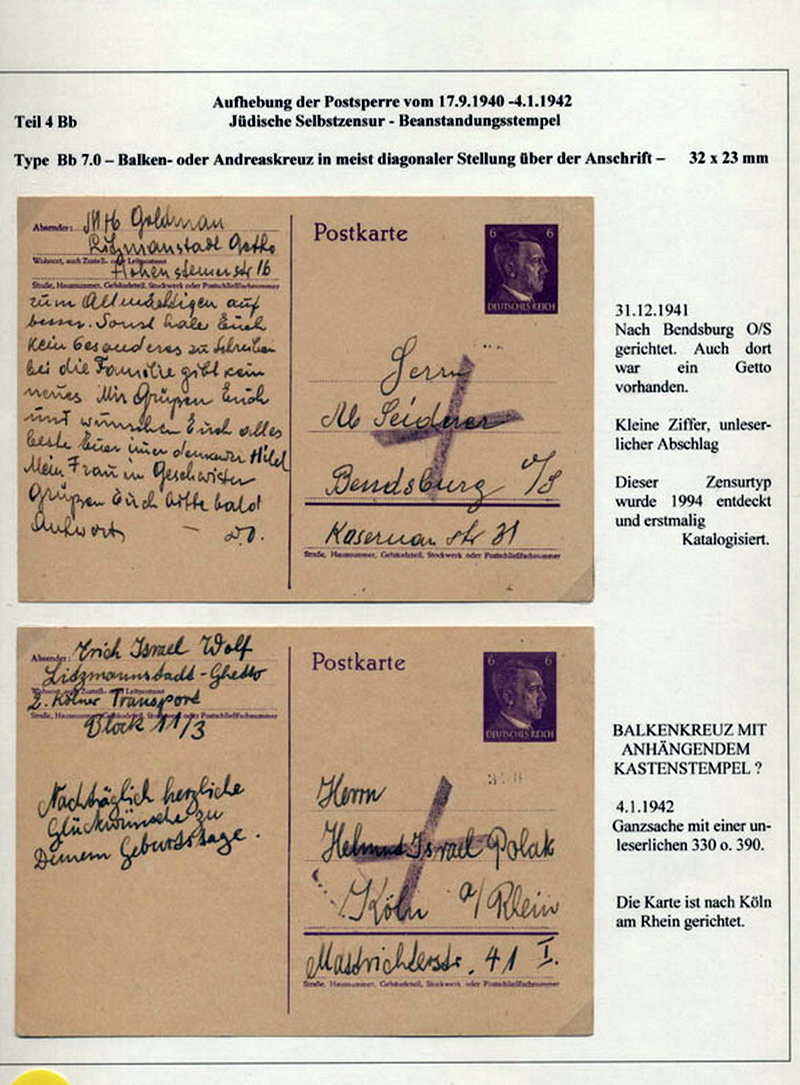 Aufhebung der Postsperre vom 17.9.1940 -4.1.1942
Teil 4 Bb
Jüdische Selbstzensur - Beanstandungsstempel
Type Bb 7.0 – Balken- oder Andreaskreuz in meist diagonaler Stellung über der Anschrift – 32 x 23 mm
Absender: MH Goldman
Litzmanstadt Getho
Wohnort, auch Zustell- oder Leitpostamt
Hohensteinerstr 16
Straße, Hausnummer, Gebäudeteil, Stockwerk oder Postschließfachnummer
zum Allmächtigen auf
besser. Sonst habe Euch
kein besonderes zu schreiben
bei die Familie gibt kein
neues Mir Grüßen Euch
und wünschen Euch alles
beste Euer
Mein Frau un Geschwister
Grüßen Euch bitte bald
Antwort
Postkarte
6 6
DEUTSCHES REICH
Herrn
Ab Seiderer
Bendsburg o/S
Kasernan str 31
Straße, Hausnummer, Gebäudeteil, Stockwerk oder Postschließfachnummer
31.12.1941
Nach Bendsburg O/S
gerichtet. Auch dort
war ein Getto
vorhanden.
Kleine Ziffer, unleser-
licher Abschlag
Dieser Zensurtyp
wurde 1994 entdeckt
und erstmalig
Katalogisiert.
Absender: Erich Israel Wolf
Litzmannstadt-Ghetto
Wohnort, auch Zustell- oder Leitpostamt
2. Kölner Transport
Straße, Hausnummer, Gebäudeteil, Stockwerk oder Postschließfachnummer
Block 11/3
Nachträglich herzliche
Glückwünsche zu
Deinem Geburtstage.
Postkarte
6 6
DEUTSCHES REICH
Herrn
Helmut Israel Polak
Köln a/Rhein
Mastrichterstr. 41 I.
Straße, Hausnummer, Gebäudeteil, Stockwerk oder Postschließfachnummer
BALKENKREUZ MIT
ANHÄNGENDEM
KASTENSTEMPEL ?
4.1.1942
Ganzsache mit einer un-
leserlichen 330 o. 390.
Die Karte ist nach Köln
am Rhein gerichtet.